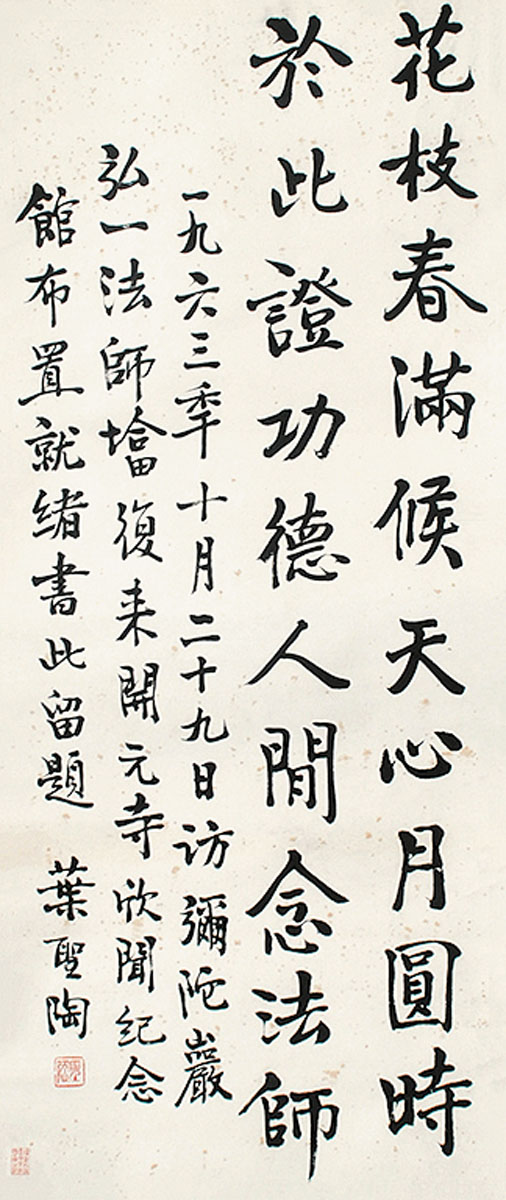 花枝春滿候天心月圓時
於此證功德人間念法師
一九六三季十月二十九日訪彌陀巖
弘一法師墖復来開元寺欣聞紀念
館布置就緒書此留題 葉聖陶